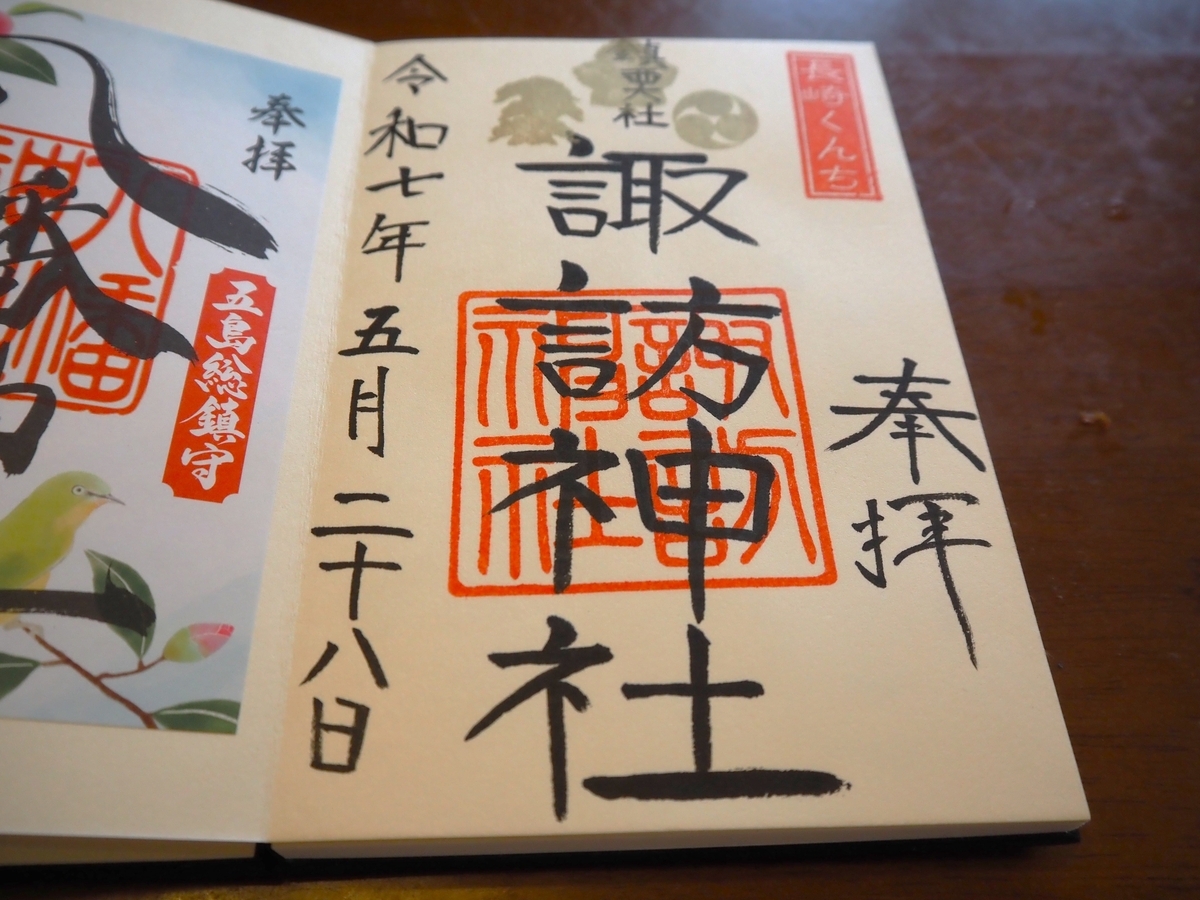 長崎くんち
奉拝
鎮西大社
諏訪神社
諏訪
神社
令和七年五月二十八日
奉拝
五島総鎮守
八幡